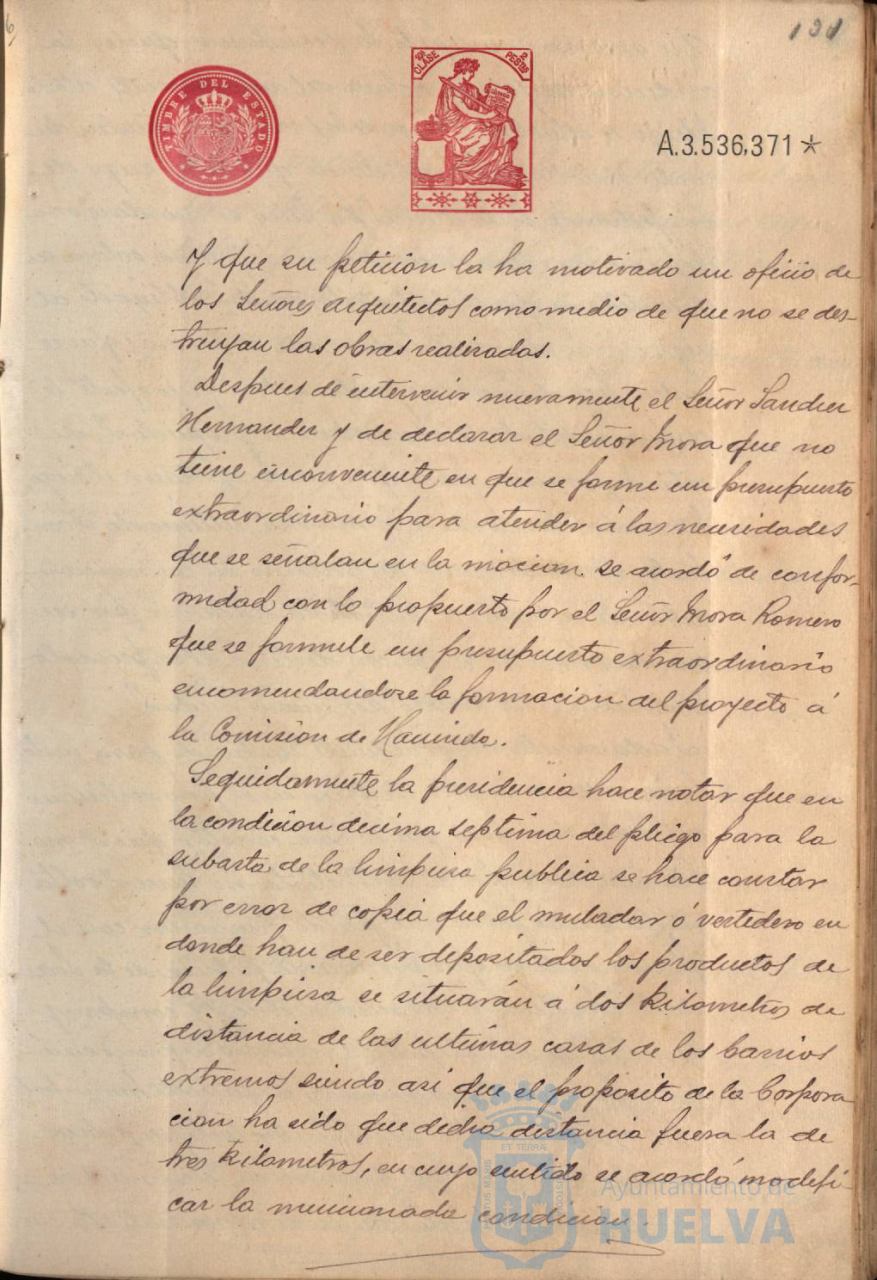 131
TIMBRE DEL ESTADO
10ª CLASE 2 PESTAS
A.3.536,371*
Y que su peticion la ha motivado un oficio de
los Señores Arquitectos como medio de que no se des-
truyan las obras realizadas.
Despues de intervenir nuevamente el Señor Sanchez
Hernandez y de declarar el Señor Mora que no
tiene inconveniente en que se forme un presupuesto
extraordinario para atender á las necesidades
que se señalan en la mocion se acordó de confor-
midad con lo propuesto por el Señor Mora Romero
que se formule un presupuesto extraordinario
encomendandose la formacion del proyecto á
la Comision de Hacienda.
Seguidamente la presidencia hace notar que en
la condicion decima septima del pliego para la
subasta de la limpieza publica se hace constar
por error de copia que el muladar ó vertedero en
donde han de ser depositados los productos de
la limpieza se situarán á dos kilometros de
distancia de las ultimas casas de los barrios
extremos siendo asi que el proposito de la Corpora
cion ha sido que dicha distancia fuera la de
tres kilometros, en cuyo sentido se acordó modifi-
car la mencionada condicion.
Ayuntamiento de
HUELVA